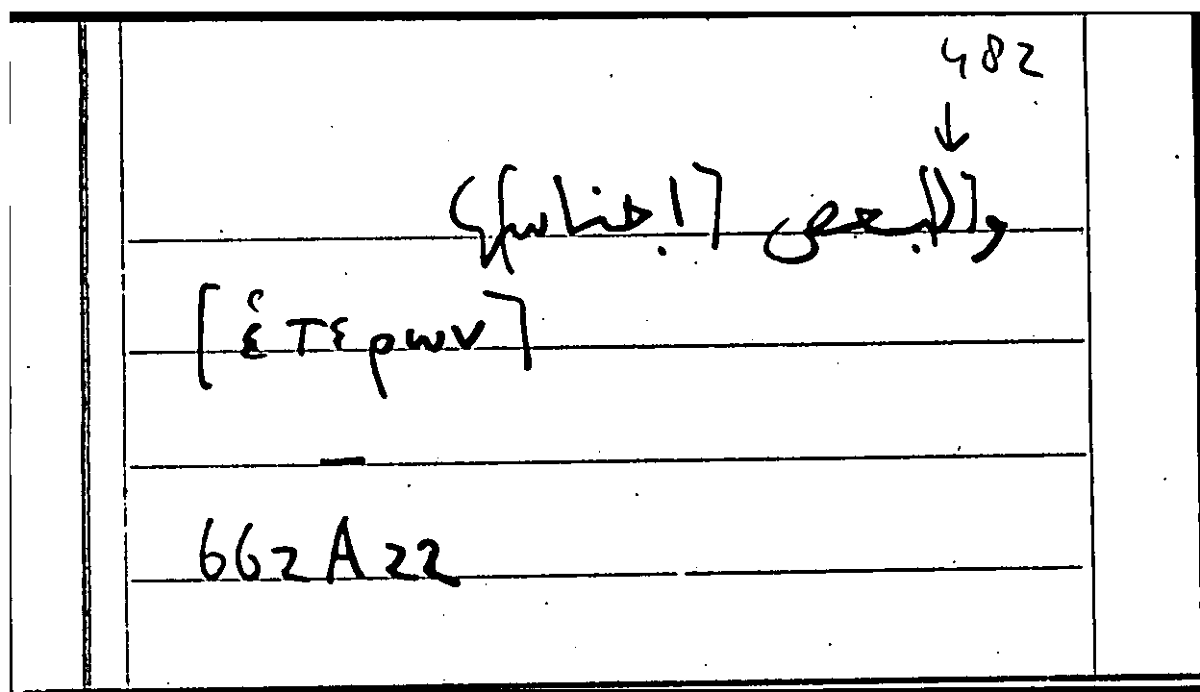 482
↓
و[ا]لبعض [اجناس]
[ἑτερων]
662A22